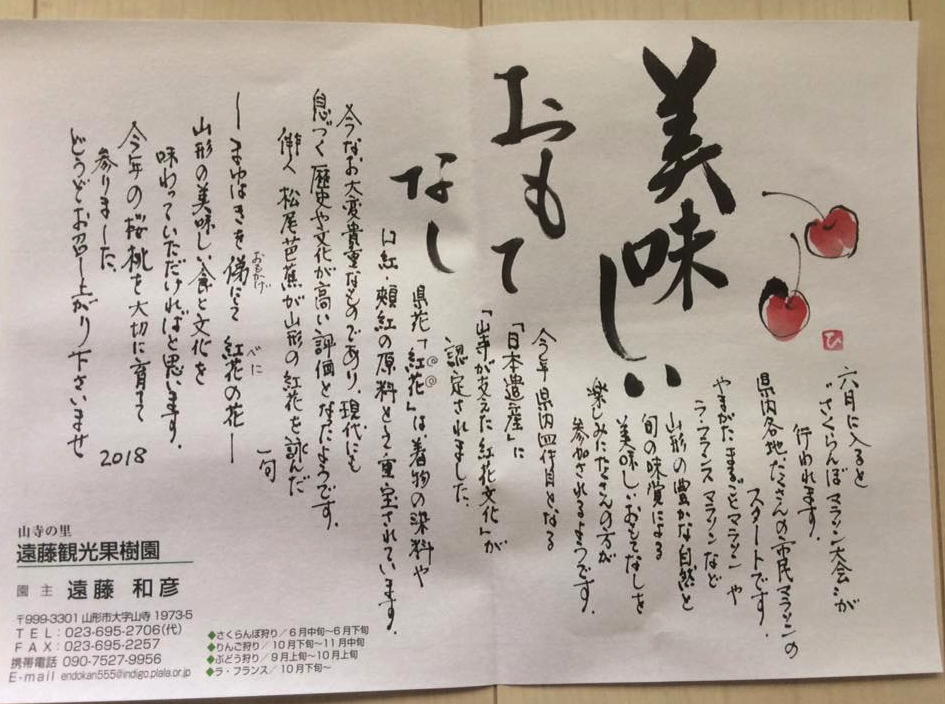 美味しい
おもて
なし
ひ
六月に入ると
"さくらんぼマラソン大会"が
行われます。
県内各地、たくさんの市民マラソンの
スタートです。
やまがたまるごとマラソン や
ラ・フランス マラソンなど
山形の豊かな自然と
旬の味覚による
美味しいおもてなしを
楽しみにたくさんの方が
参加されるようです。
今年 県内四件目となる
「日本遺産」に
「山寺が支えた紅花文化」が
認定されました。
県花「紅花」は、着物の染料や
口紅・頬紅の原料として重宝されています。
今なお大変貴重なものであり、現代にも
息づく歴史や文化が高い評価となったようです。
俳人 松尾芭蕉が山形の紅花を詠んだ
一句
ーまゆはきを俤にして 紅粉の花ー
おもかげ
べに
山形の美味しい食と文化を
味わっていただければと思います。
今年の桜桃を大切に育てて
参りました。
どうぞお召し上がり下さいませ
2018
山寺の里
遠藤観光果樹園
園主 遠藤 和彦
〒999-3301 山形市大字山寺 1973-5
TEL:023-695-2706(代)
FAX:023-695-2257
携帯電話 090-7527-9956
E-mail endokan555@indigo.plala.or.jp
◆さくらんぼ狩り/6月中旬〜6月下旬
◆りんご狩り/10月下旬〜11月中旬
◆ぶどう狩り/9月上旬〜10月上旬
◆ラ・フランス/10月下旬〜